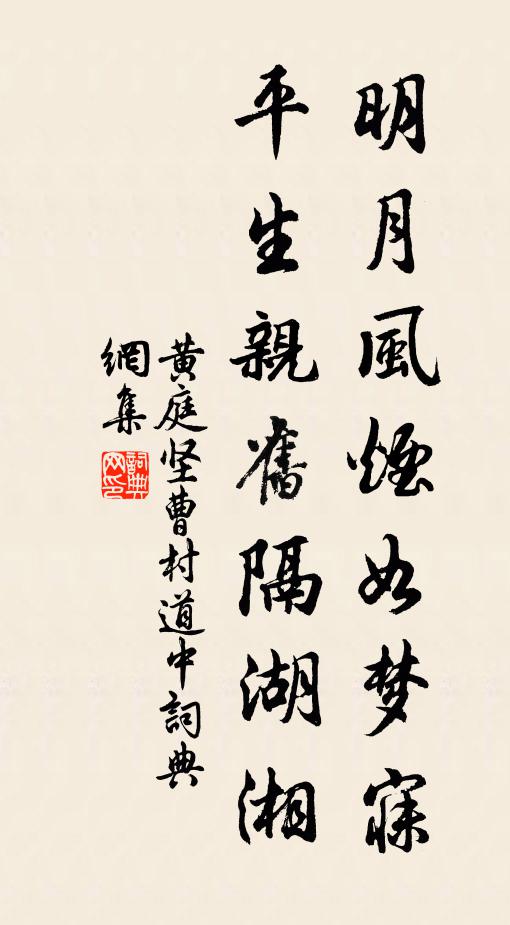 明月風煙如梦寐
平生親舊隔湖湘
黄庭坚曹村道中詞典
網集
詞典網印